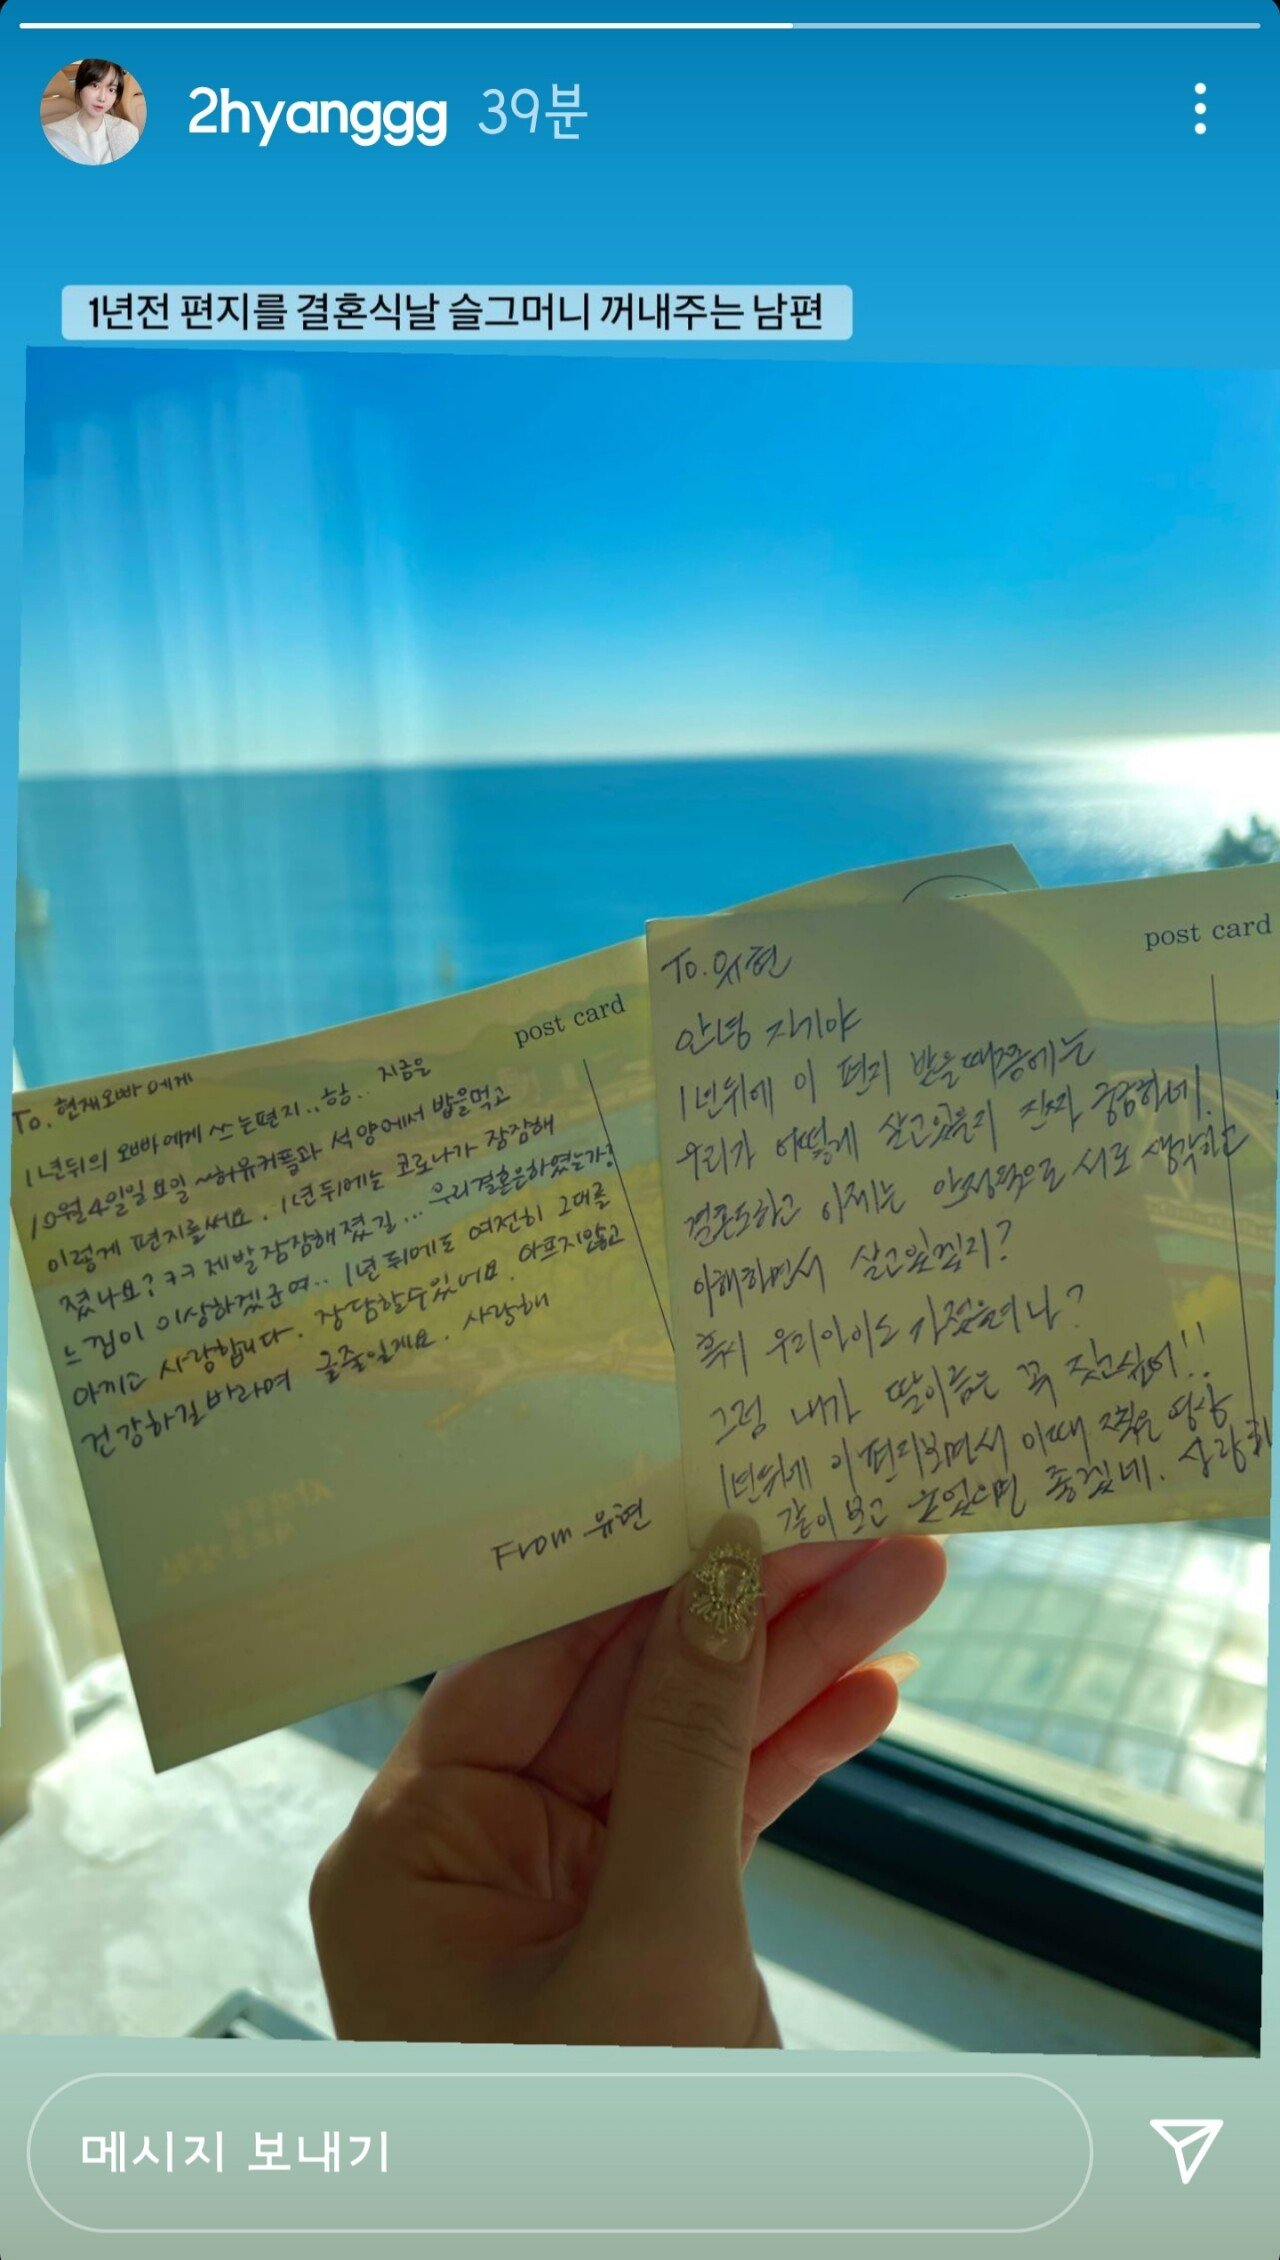 2hyanggg 39분
1년전 편지를 결혼식날 슬그머니 꺼내주는 남편
post card
To. 현재오빠에게
1년뒤의 오빠에게 쓰는편지.. ㅎㅎ.. 지금은
10월4일일요일 ~허유커플과 석양에서 밥을먹고
이렇게 편지를써요. 1년뒤에는 코로나가 잠잠해
졌나요? ㅋㅋ 제발잠잠해졌길... 우리결혼은하였는가?
느낌이 이상하겠군여.. 1년뒤에도 여전히 그대를
아끼고 사랑합니다. 장담할수있어요. 아프지않고
건강하길바라며 글줄일게요. 사랑해
From 유현
post card
To. 유현
안녕 자기야
1년뒤에 이 편지 받을때쯤에는
우리가 어떻게 살고있을지 진짜 궁금하네.
결혼도하고 이제는 안정적으로 서로 생각하고
이해하면서 살고있겠지?
혹시 우리아이도 가졌을려나?
그럼 내가 딸이름은 꼭 짓고싶어!!
1년뒤에 이편지보면서 이때 찍은 영상
같이 보고 웃었으면 좋겠네. 사랑해
메시지 보내기